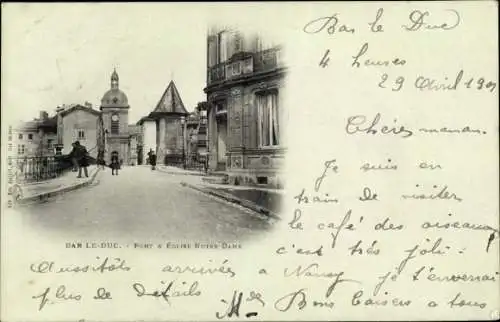 Bar le Duc
4 heures
29 Avril 190
Chère maman
Je suis en
train de visiter
le café des oiseaux
c'est très joli.
BAR LE-DUC. - PONT & ÉGLISE NOTRE DAME
Aussitôt arrivée à Nancy je t'enverrai
plus de détails
Bons baisers à tous